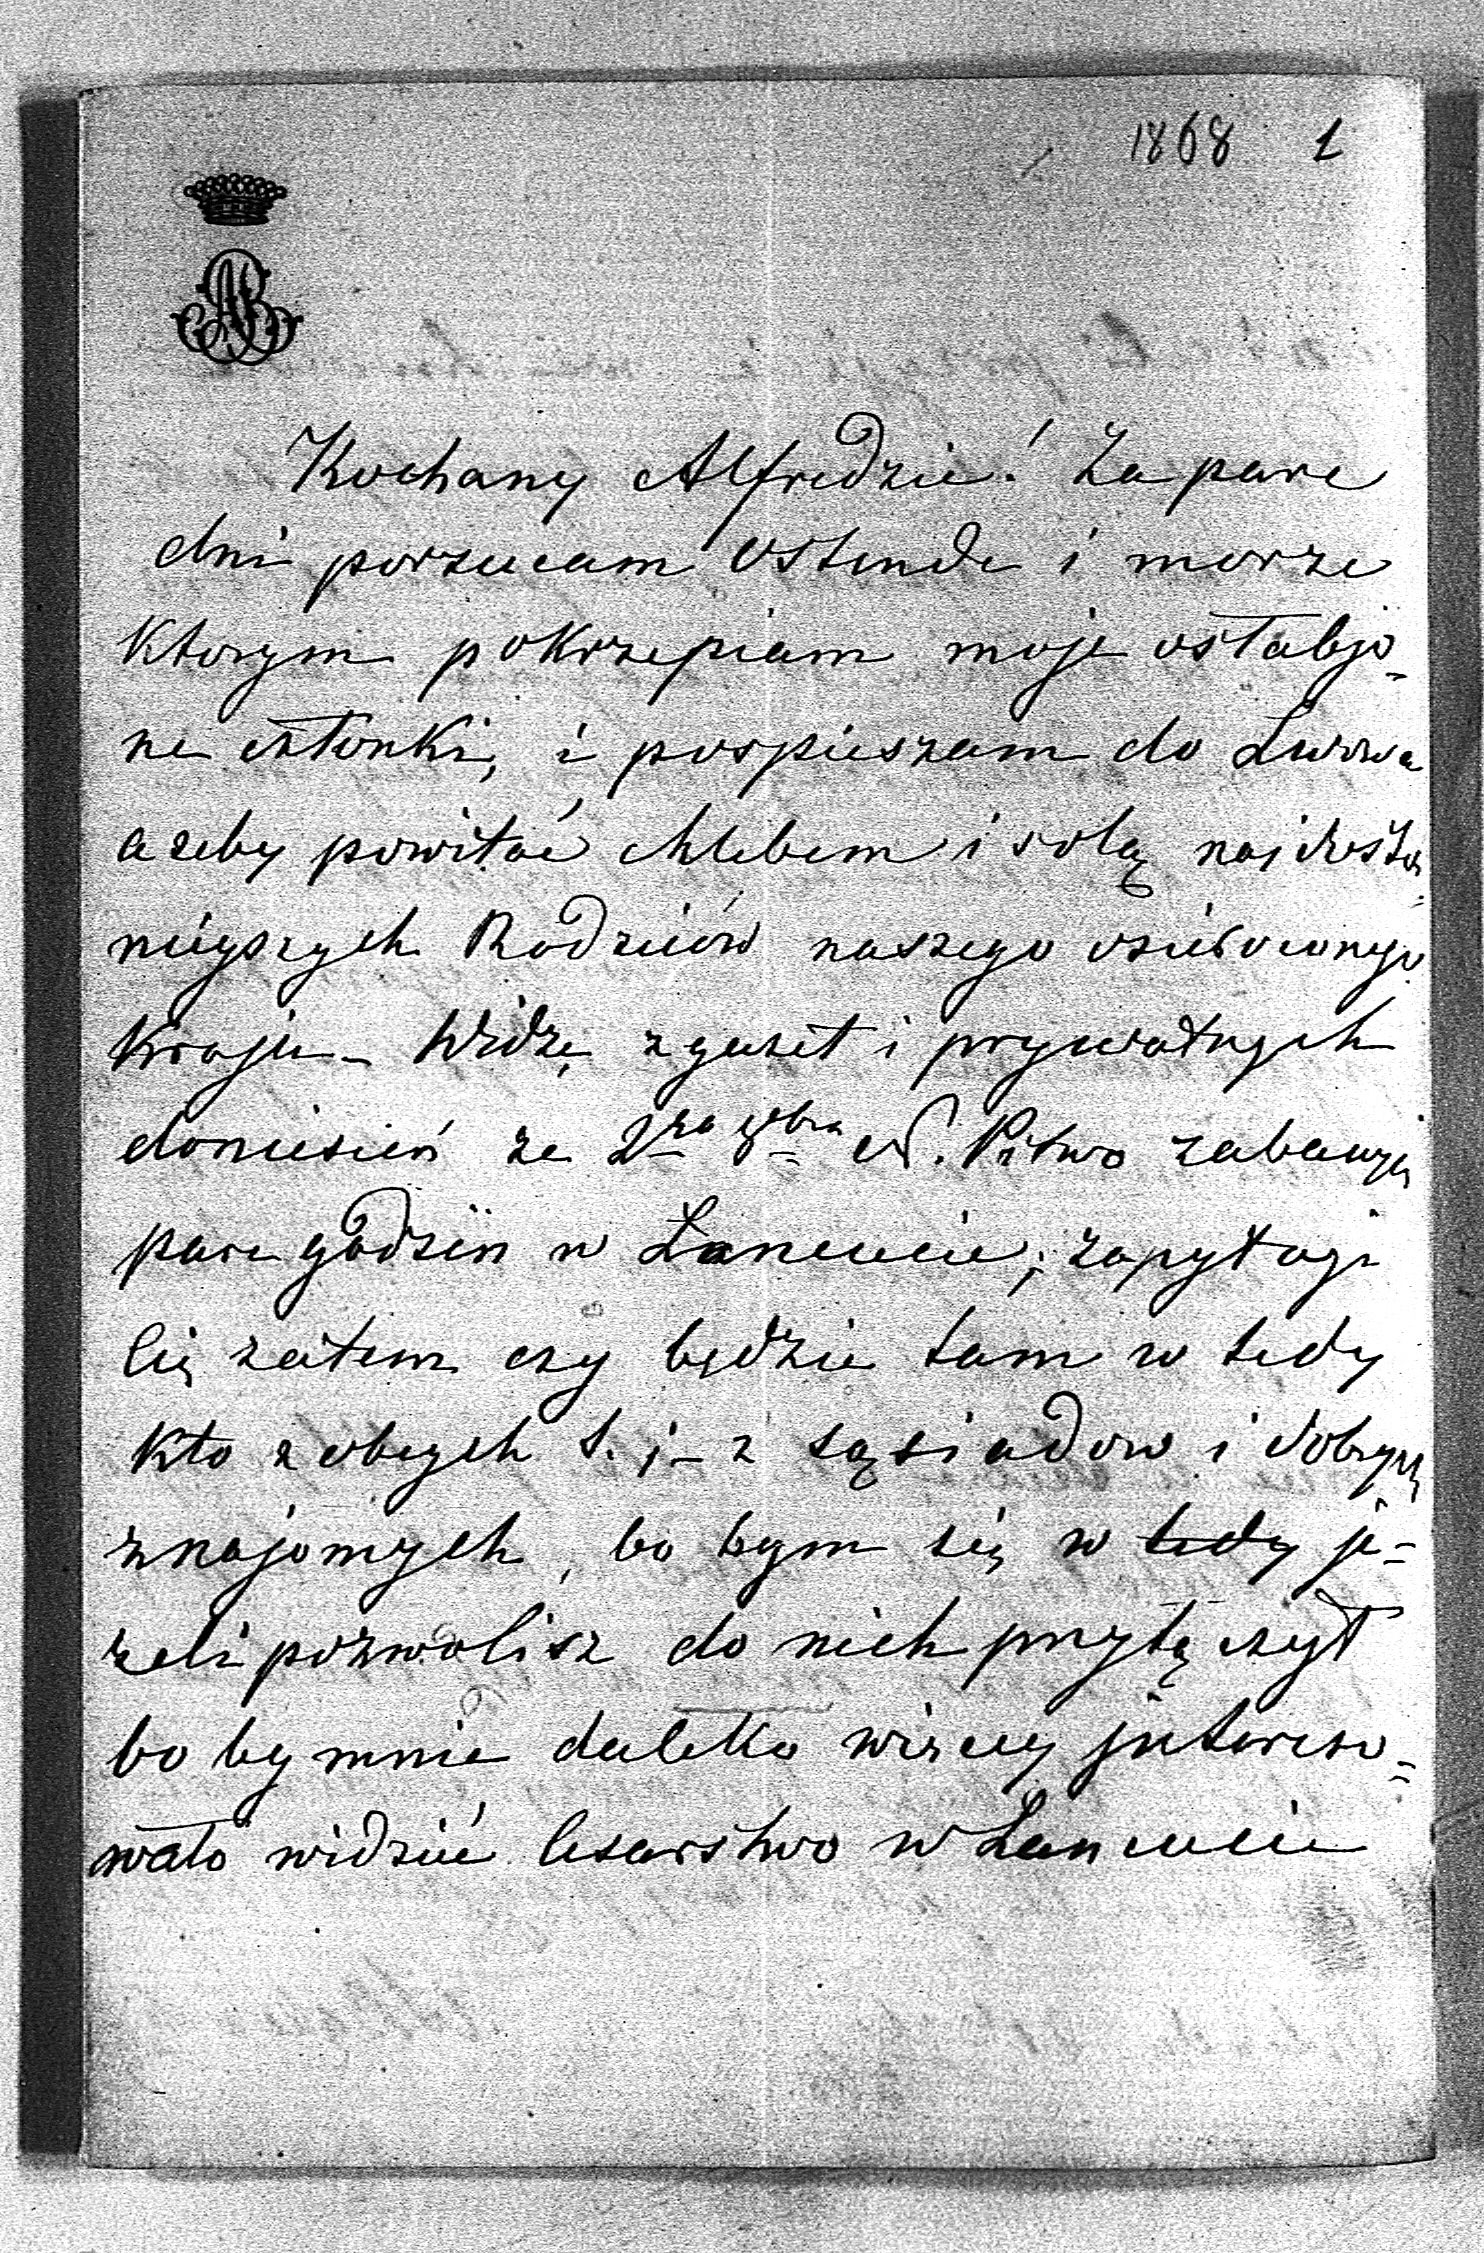 1868 1
AB
Kochany Alfredzie! Za pare
dni porzucam Ostende i morze
ktorym pokrzepiam moje osłabjo-
ne członki, i pospieszam do Lwowa
azeby powitać chlebem i solą najdosto
niejszych Rodziców naszego osieroconego
Kraju - Widzę z gazet i prywatnych
doniesień ze 2go 8bra N. Pństwo zabawją
pare godzin w Łancucie, zapytaje
Cię zatem czy będzie tam w tedy
kto z obcych t. j - z sąsiadow i dobrych
znajomych, bo bym się w tedy je-
zeli pozwolisz do nich przyłączył
bo by mnie daleko więcej intereso=
wało widzieć Cesarstwo w Łancucie